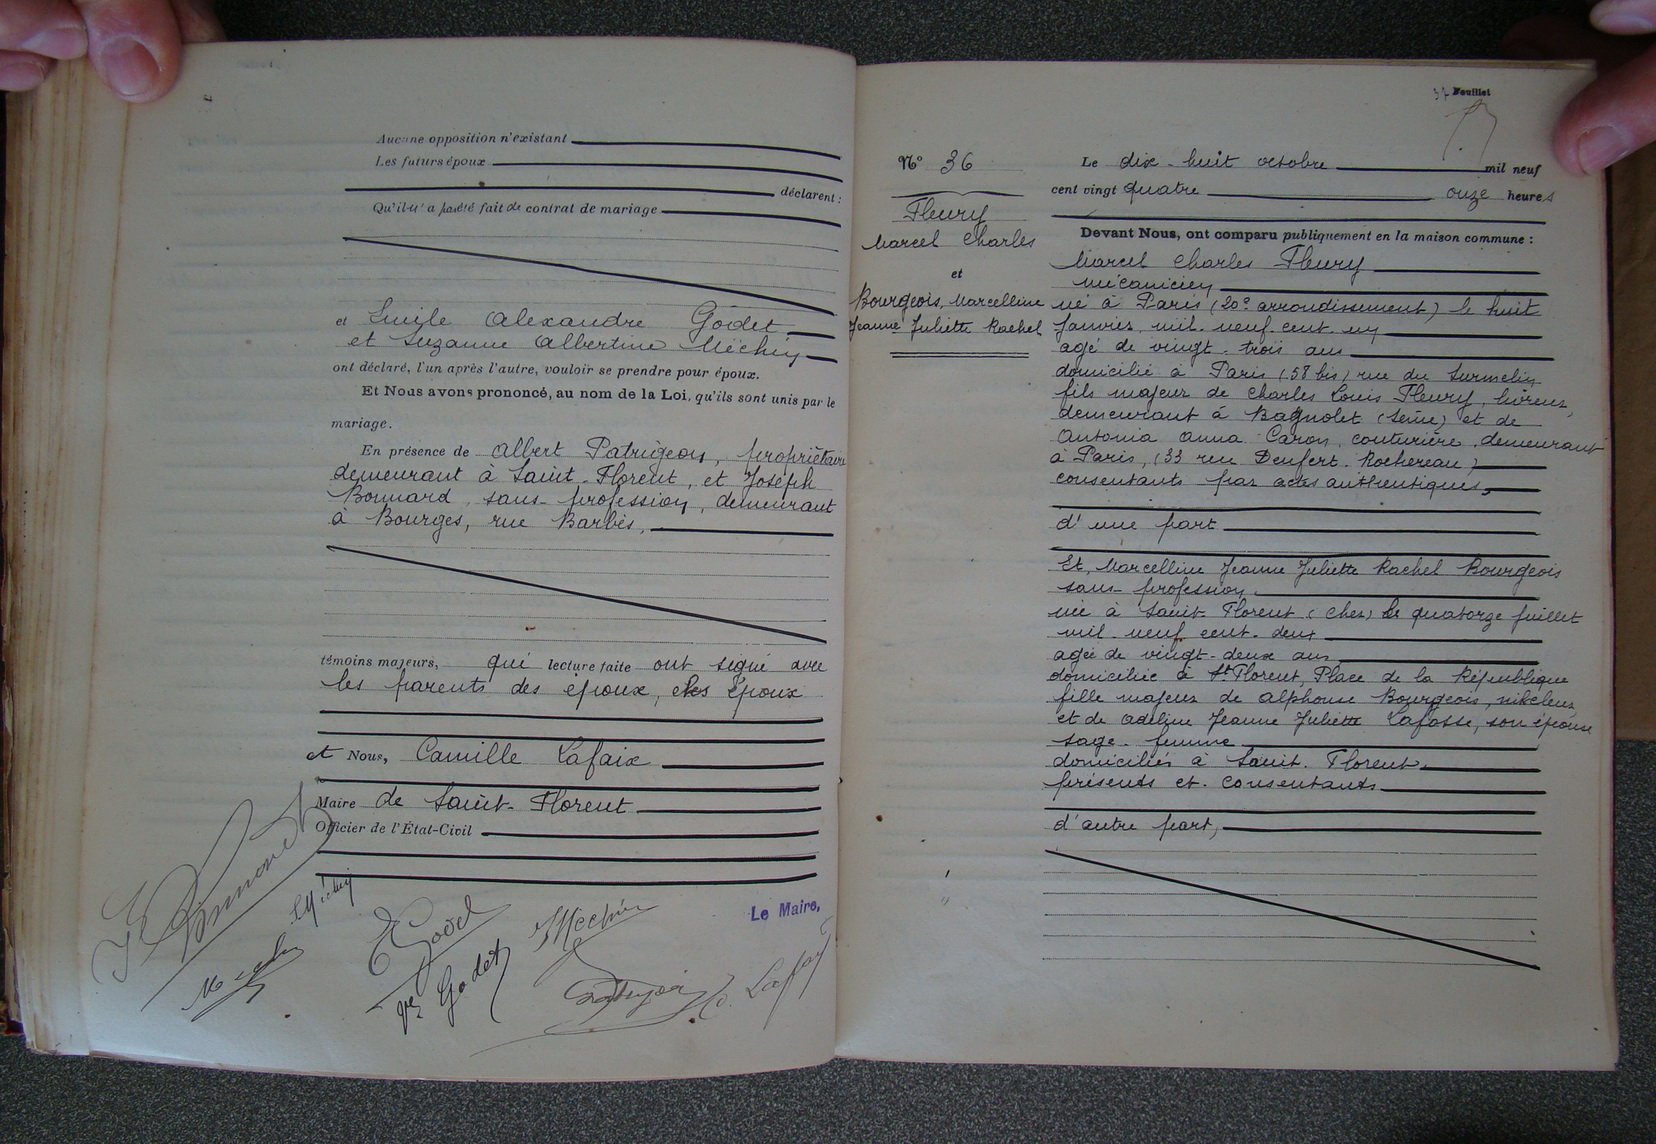 Aucune opposition n'existant
Les futurs époux
déclarent :
Qu'il n'a pas été fait de contrat de mariage
et Emile Alexandre Godet
et Suzanne Albertine Méchin
ont déclaré, l'un après l'autre, vouloir se prendre pour époux.
Et Nous avons prononcé, au nom de la Loi, qu'ils sont unis par le
mariage.
En présence de Albert Patrigeon, propriétaire
demeurant à Saint-Florent, et Joseph
Bonnard, sans profession, demeurant
à Bourges, rue Barbès,
témoins majeurs, qui lecture faite ont signé avec
les parents des époux, et les époux
et Nous, Camille Lafaix
Maire de Saint-Florent
Officier de l'État-Civil
Méchin
EGodet
Méchin
Le Maire,
Godet
C. Lafaix
37 Feuillet
N° 36
Fleury
Marcel Charles
et
Bourgeois, Marcelline
Jeanne Juliette Rachel
Le dix-huit octobre mil neuf
cent vingt quatre onze heures
Devant Nous, ont comparu publiquement en la maison commune :
Marcel Charles Fleury
mécanicien
né à Paris (20e arrondissement) le huit
Janvier mil-neuf-cent-un
agé de vingt-trois ans
domicilié à Paris (58 bis) rue du Surmelin
fils majeur de Charles Louis Fleury, livreur,
demeurant à Bagnolet (Seine) et de
Antonia Anna Caron, couturière, demeurant
à Paris, (33 rue Denfert-Rochereau)
consentants par actes authentiques,
d'une part
Et, Marcelline Jeanne Juliette Rachel Bourgeois
sans profession
née à Saint-Florent (Cher) le quatorze juillet
mil-neuf-cent-deux
agée de vingt-deux ans
domiciliée à St Florent, Place de la République
fille majeur de Alphonse Bourgeois, nikeleur
et de Adeline Jeanne Juliette Lafosse, son épouse
sage-femme
domiciliés à Saint-Florent,
présents et consentants
d'autre part,